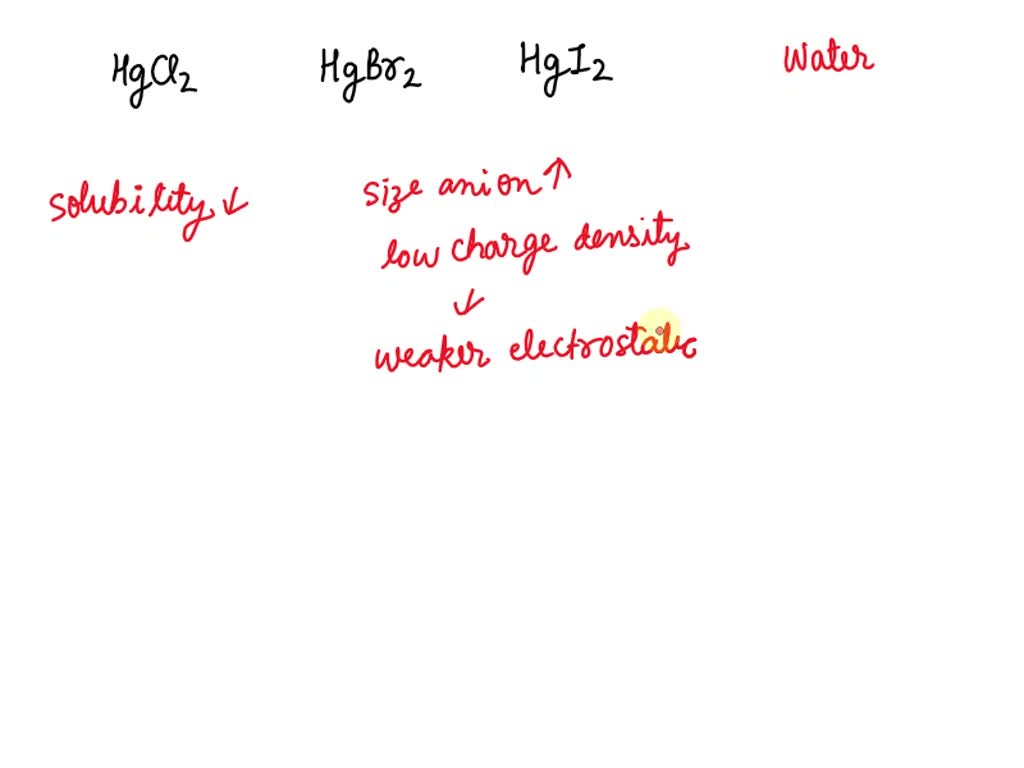 HgCl2 HgBr2 HgI2 Water
solubility ↓ size anion ↑
low charge density
↓
weaker electrostatic